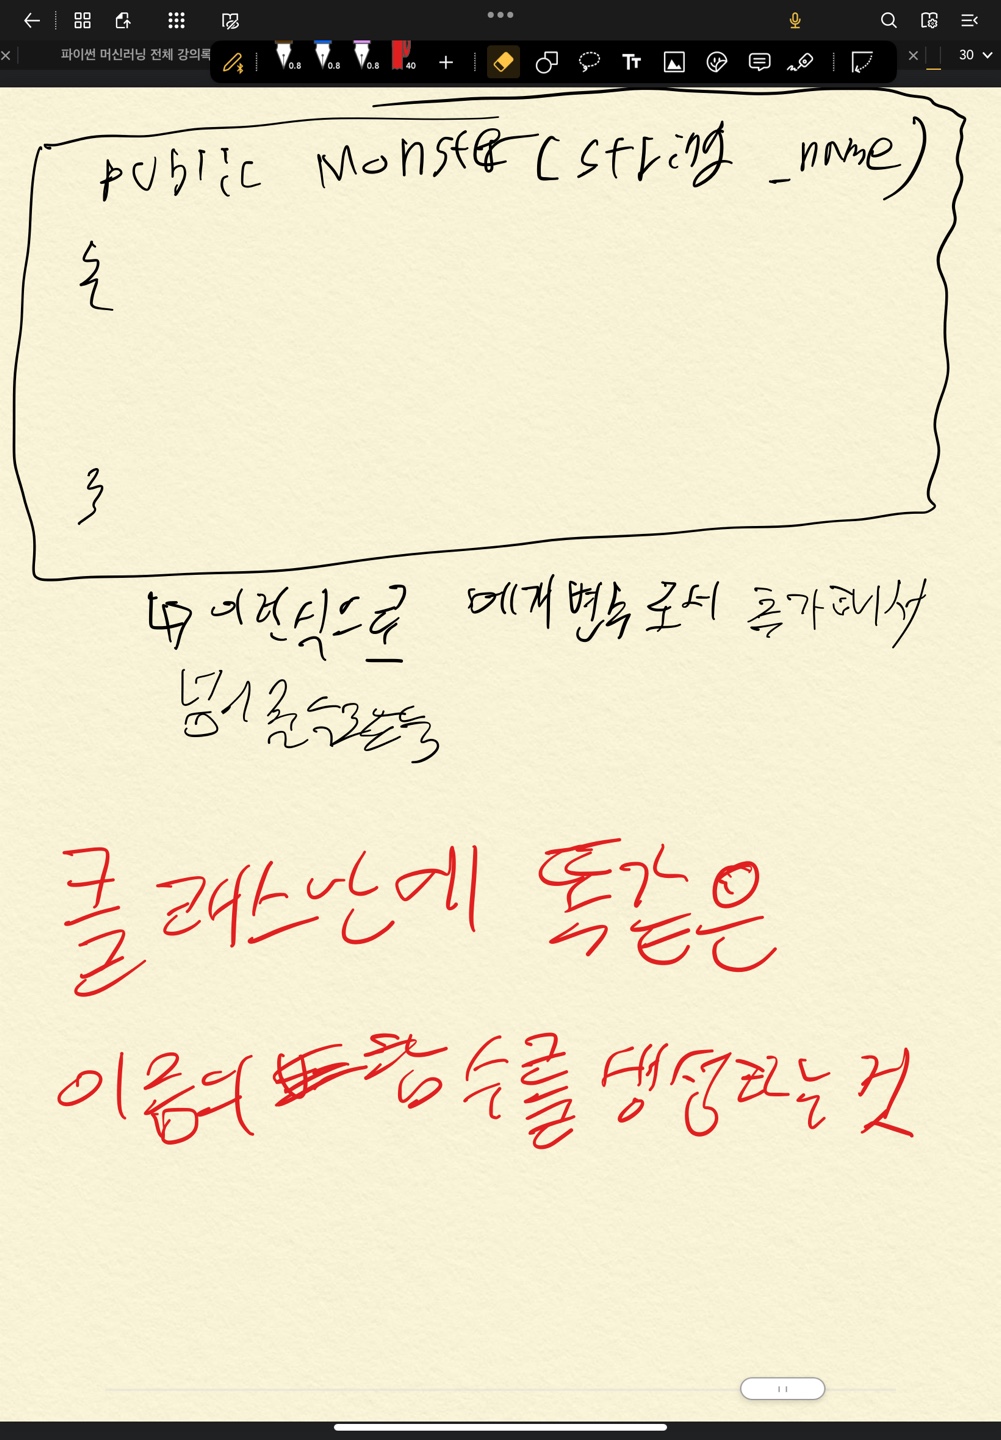 파이썬 머신러닝 전체 강의록
0.8 0.8 0.8 40 Tт 30
public Monster(string _name)
{
}
↳ 이런식으로 매개변수로서 추가해서
넘겨줄수도있음
클래스안에 똑같은
이름의 함수를 생성하는 것